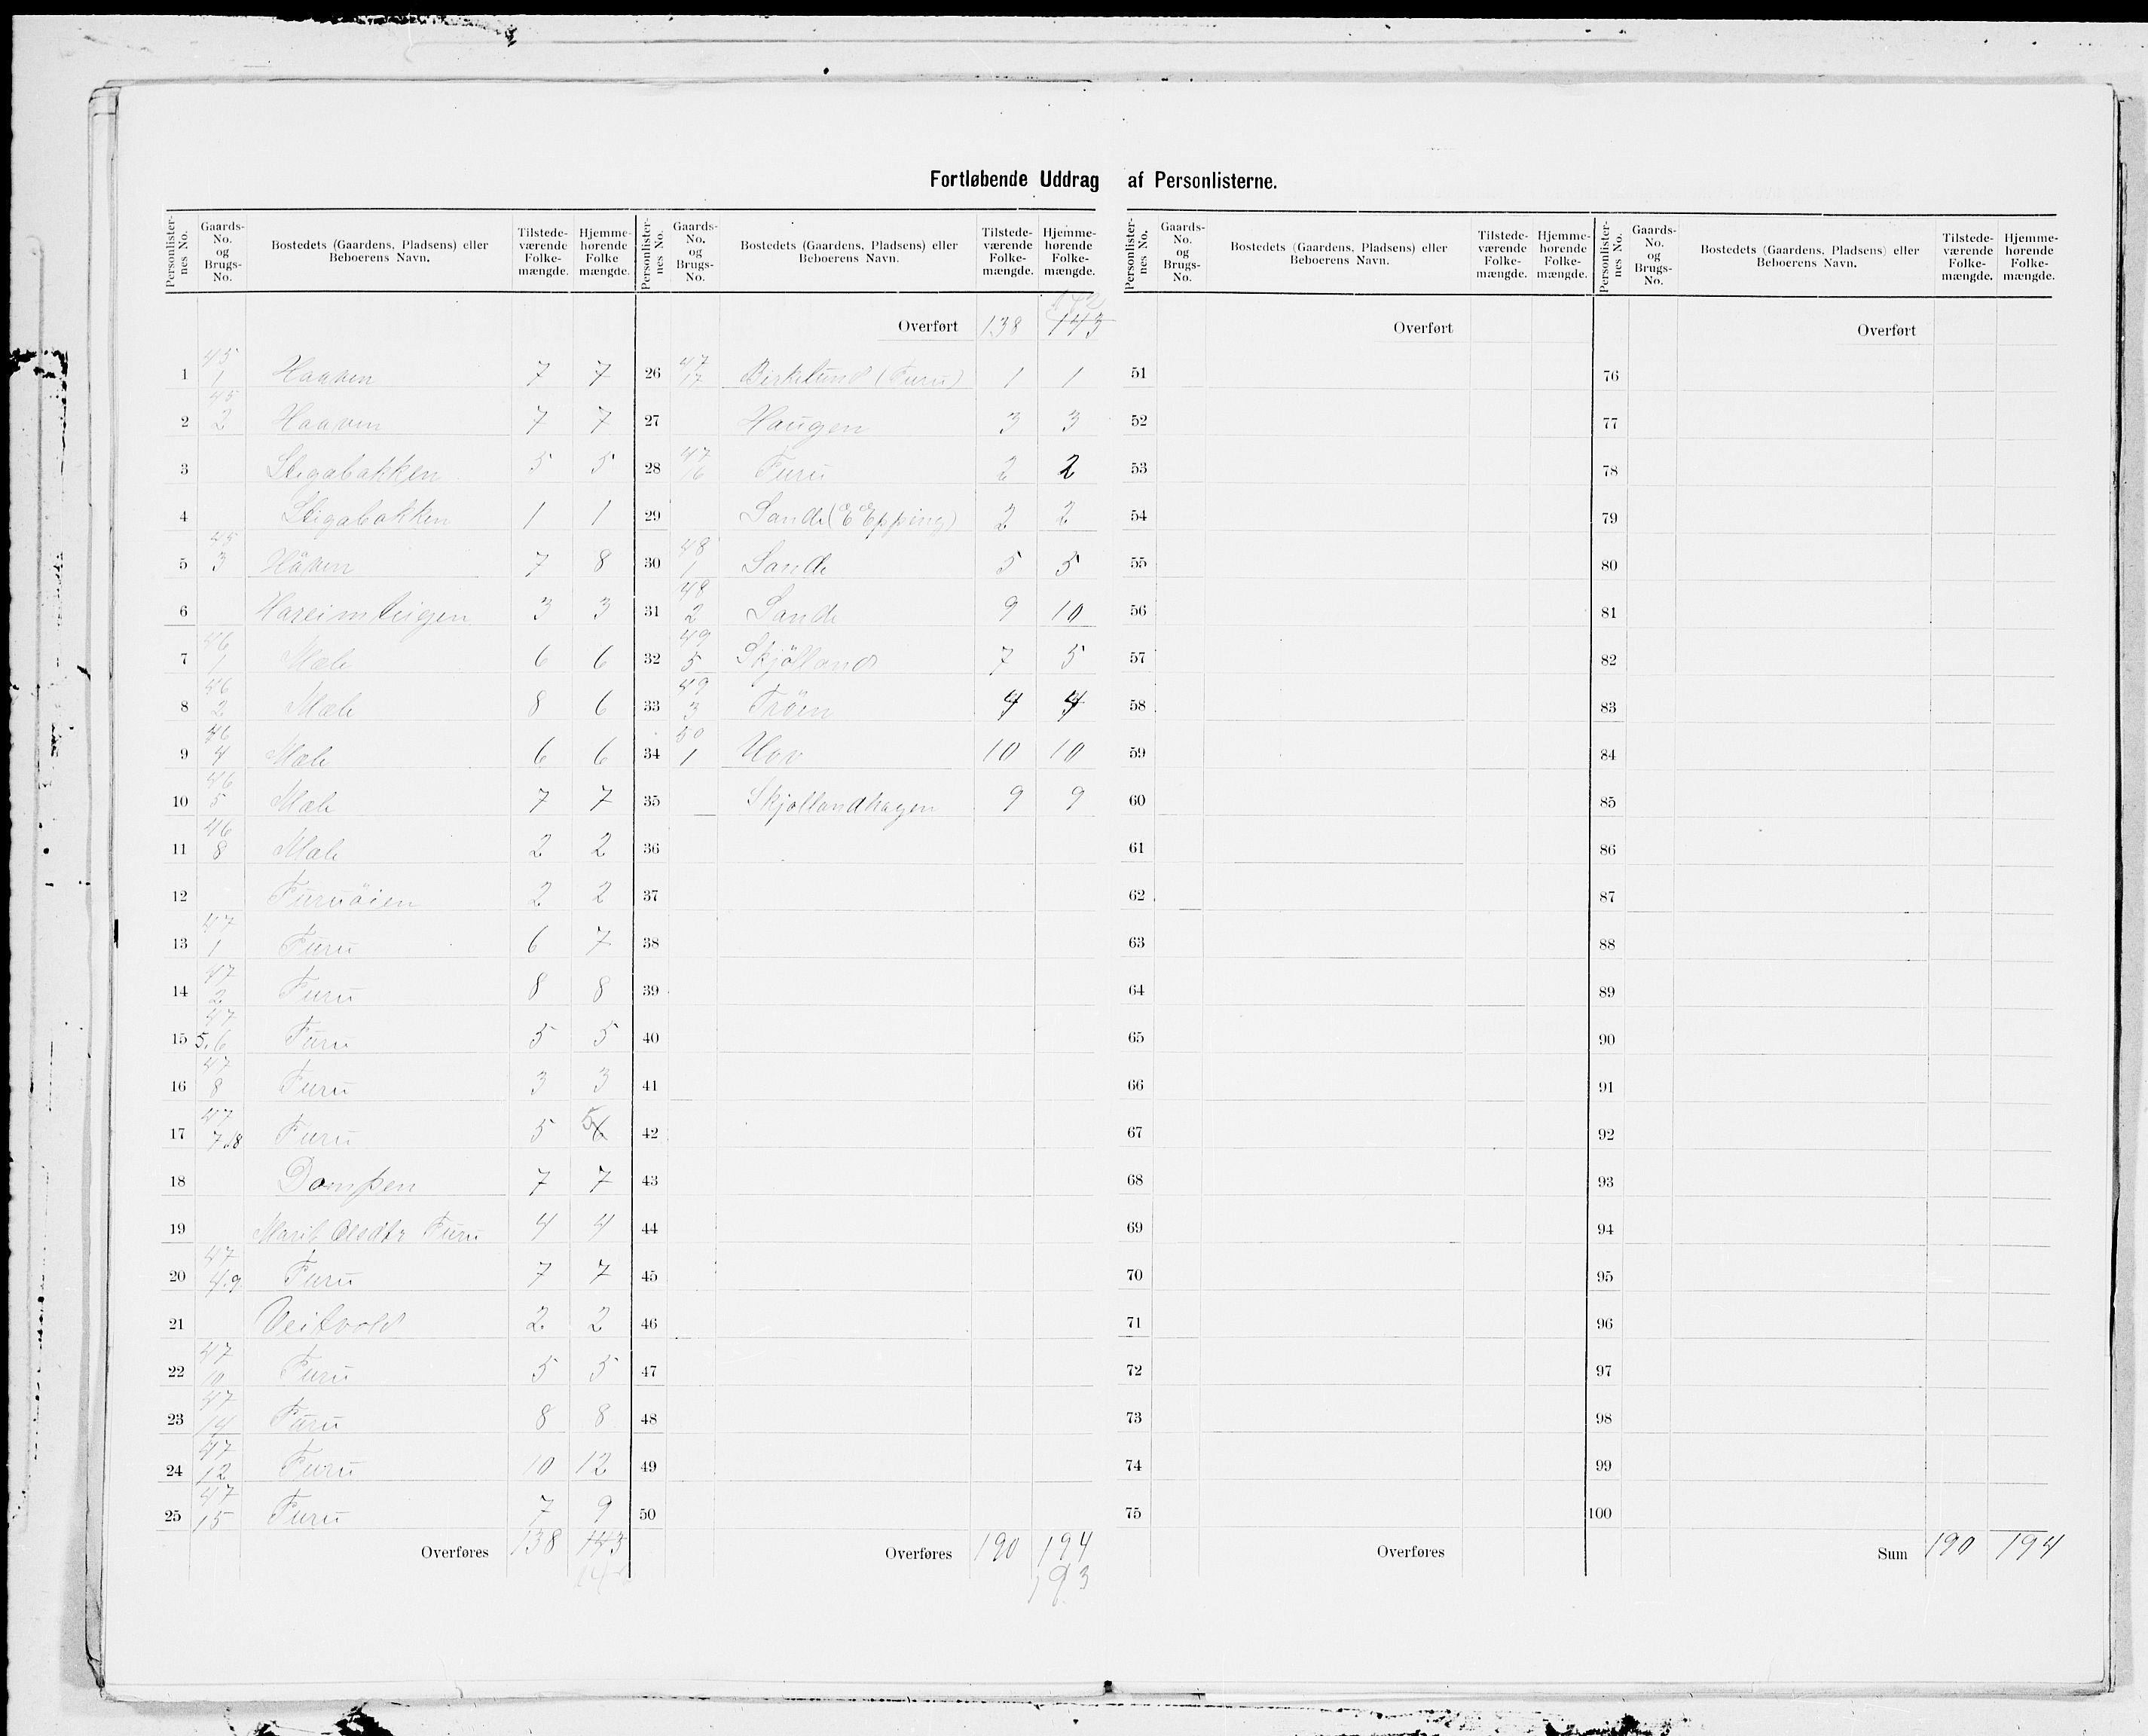 Fortløbende Uddrag af Personlisterne.
Personlister-nes No. | Gaards-No. og Brugs-No. | Bostedets (Gaardens, Pladsens) eller Beboerens Navn. | Tilstede-værende Folke-mængde. | Hjemme-hørende Folke mængde.
1 | 45 1 | Haaven | 7 | 7
2 | 45 2 | Haaven | 7 | 7
3 | Stigabakken | 5 | 5
4 | Stigabakken | 1 | 1
5 | 45 3 | Håven | 7 | 8
6 | Hareimteigen | 3 | 3
7 | 46 1 | Mæle | 6 | 6
8 | 46 2 | Mæle | 8 | 6
9 | 46 4 | Mæle | 6 | 6
10 | 46 5 | Mæle | 7 | 7
11 | 46 8 | Mæle | 2 | 2
12 | Furuöien | 2 | 2
13 | 47 1 | Furu | 6 | 7
14 | 47 2 | Furu | 8 | 8
15 | 47 5,6 | Furu | 5 | 5
16 | 47 8 | Furu | 3 | 3
17 | 47 7,18 | Furu | 5 | 5 6
18 | Dampen | 7 | 7
19 | Marit Olsdtr Furu | 4 | 4
20 | 47 4,9 | Furu | 7 | 7
21 | Veitvold | 2 | 2
22 | 47 10 | Furu | 5 | 5
23 | 47 14 | Furu | 8 | 8
24 | 47 12 | Furu | 10 | 12
25 | 47 15 | Furu | 7 | 9
Overføres | 138 | 143
Personlister-nes No. | Gaards-No. og Brugs-No. | Bostedets (Gaardens, Pladsens) eller Beboerens Navn. | Tilstede-værende Folke-mængde. | Hjemme-hørende Folke-mængde.
142
Overført | 138 | 143
26 | 47 17 | Birkelund (Furu) | 1 | 1
27 | Haugen | 3 | 3
28 | 47 16 | Furu | 2 | 2
29 | Sande (E Epping) | 2 | 2
30 | 48 1 | Sande | 5 | 5
31 | 48 2 | Sande | 9 | 10
32 | 49 5 | Skjölland | 7 | 5
33 | 49 3 | Tröen | 4 | 4
34 | 50 1 | Hov | 10 | 10
35 | Skjøllandhagen | 9 | 9
36
37
38
39
40
41
42
43
44
45
46
47
48
49
50
Overføres | 190 | 194
193
Personlister-nes No. | Gaards-No. og Brugs-No. | Bostedets (Gaardens, Pladsens) eller Beboerens Navn. | Tilstede-værende Folke-mængde. | Hjemme-hørende Folke-mængde.
Overført
51
52
53
54
55
56
57
58
59
60
61
62
63
64
65
66
67
68
69
70
71
72
73
74
75
Overføres
Personlister-nes No. | Gaards-No. og Brugs-No. | Bostedets (Gaardens, Pladsens) eller Beboerens Navn. | Tilstede-værende Folke-mængde. | Hjemme-hørende Folke-mængde.
Overført
76
77
78
79
80
81
82
83
84
85
86
87
88
89
90
91
92
93
94
95
96
97
98
99
100
Sum | 190 | 194